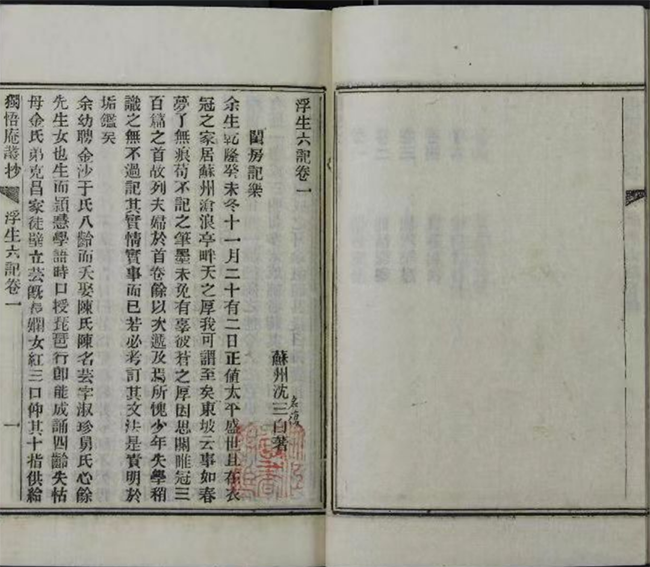 浮生六記卷一
閨房記樂
蘇州沈三白著
名復
余生乾隆癸未冬十一月二十有二日正値太平盛世且在衣
冠之家居蘇州滄浪亭畔天之厚我可謂至矣東坡云事如春
夢了無痕苟不記之筆墨未免有辜彼蒼之厚因思關雎冠三
百篇之首故列夫婦於首卷餘以次遞及焉所愧少年失學稍
識之無不過記其實情實事而已若必考訂其文法是責明於
垢鑑矣
余幼聘金沙于氏八齡而夭娶陳氏陳名芸字淑珍舅氏心餘
先生女也生而穎慧學語時口授琵琶行卽能成誦四齡失怙
母金氏弟克昌家徒壁立芸旣長嫻女紅三口仰其十指供給
獨悟庵叢抄 浮生六記卷一 一